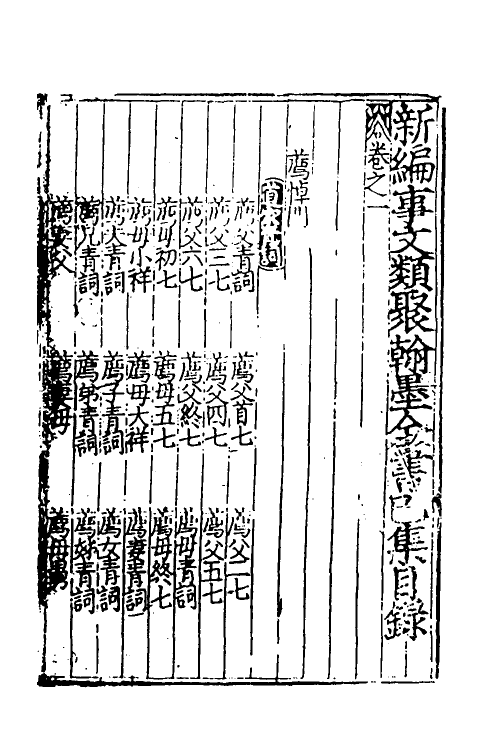 新編事文類聚翰墨全書己集目錄
卷之一
薦悼
薦父青詞 薦父首七 薦父二七
薦父三七 薦父四七 薦父五七
薦父六七 薦父終七 薦母青詞
薦母初七 薦母五七 薦母終七
薦母小祥 薦母大祥 薦妻青詞
薦夫青詞 薦子青詞 薦女青詞
薦兄青詞 薦弟青詞 薦姊青詞
薦妻父 薦妻母 薦母舅